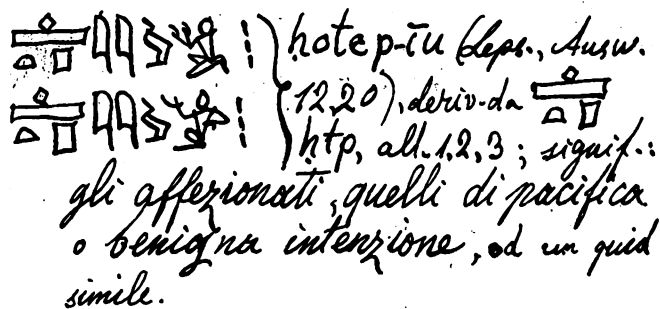 𓊵𓏏𓊪𓇋𓇋 hotep-īu (Leps., Ausw.
𓊵𓏏𓊪𓇋𓇋 12,20), deriv-da 𓊵𓏏𓊪
htp, all.1,2,3; signif.:
gli affezionati, quelli di pacifica
o benigna intenzione, od un quid
simile.